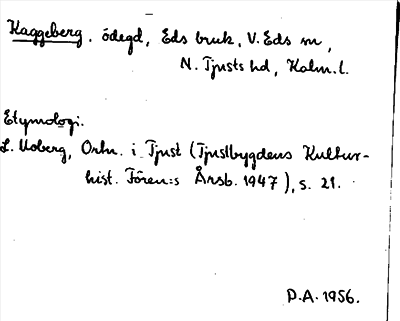 Kaggeberg. ödegd, Eds bruk, V. Eds sn,
N. Tjusts hd, Kalm. l.
Etymologi.
L. Moberg, Ortn. i Tjust (Tjustbygdens Kultur-
hist. Fören:s Årsb. 1947), s. 21.
D.A. 1956.